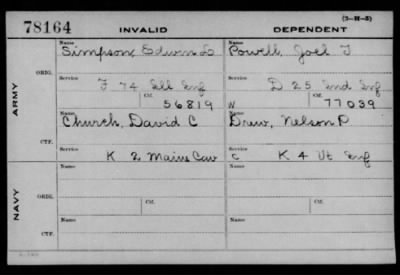 78164 INVALID DEPENDENT (3-H-5)
Name Name
Simpson, Edwin L Powell, Joel T
ORIG. Service Service
F 74 Ill Inf D 25 Ind Inf
Ctf. Ctf.
56819 W 77039
ARMY
Name Name
Church, David C Drew, Nelson P
CTF. Service Service
K 2 Maine Cav C K 4 Vt Inf
Name Name
ORIG. Service Ctf. Service Ctf.
NAVY
Name Name
CTF. Service Service